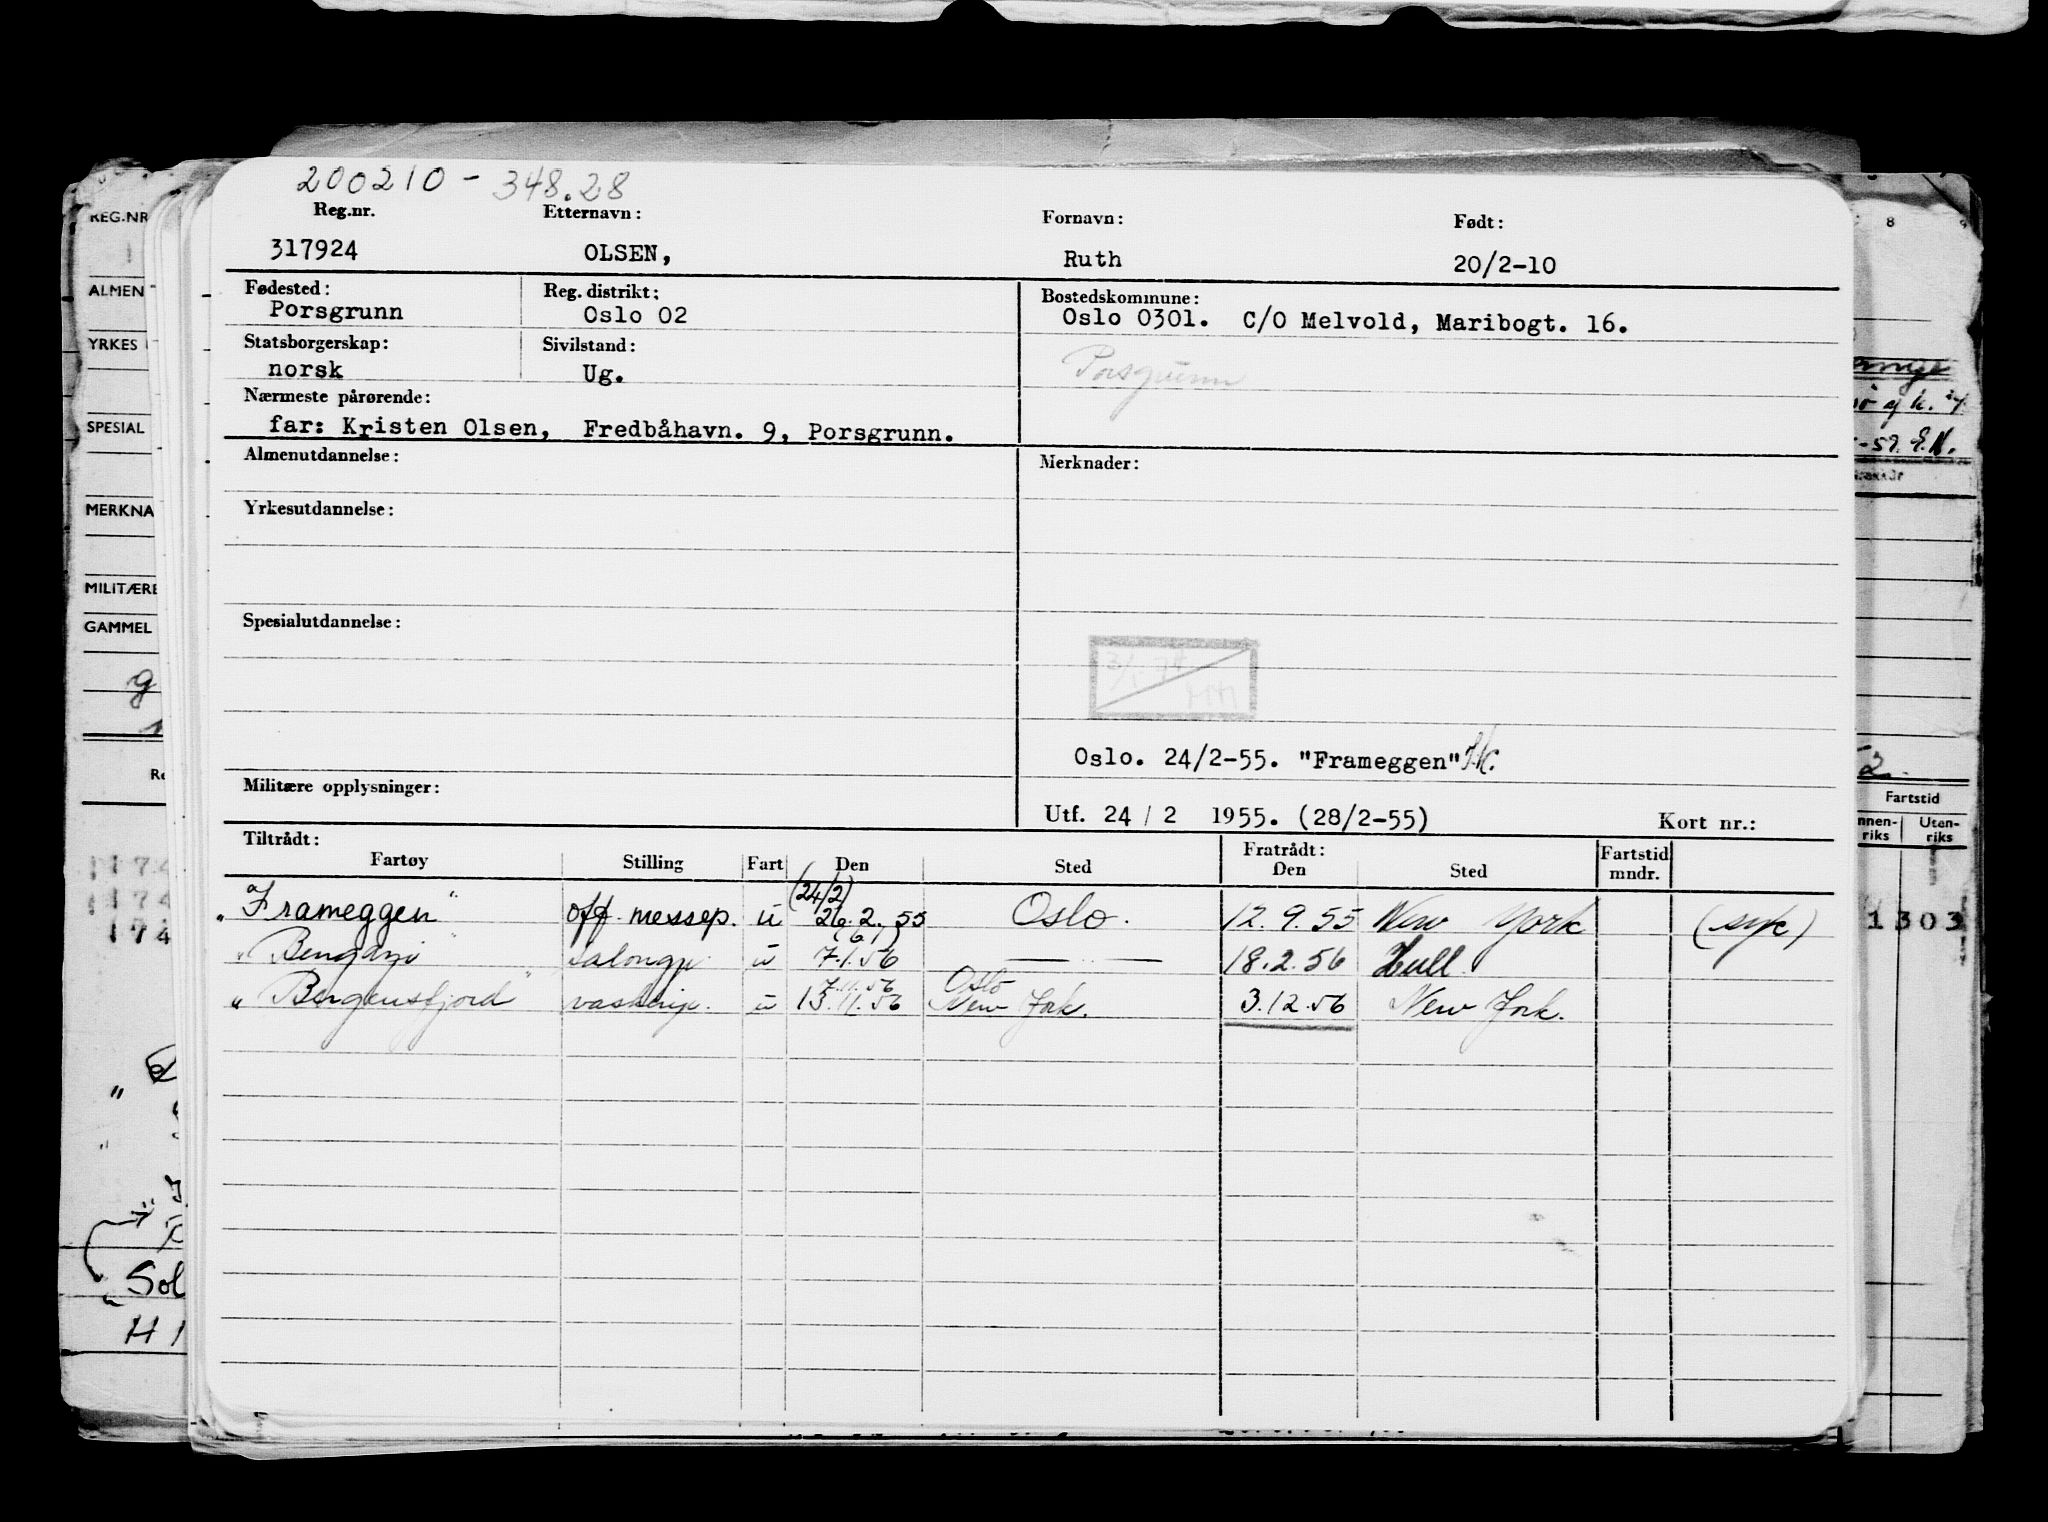 200210 - 348.28
Reg.nr. Etternavn: Fornavn: Født:
317924 OLSEN, Ruth 20/2-10
Fødested: Reg. distrikt: Bostedskommune:
Porsgrunn Oslo 02 Oslo 0301. C/O Melvold, Maribogt. 16.
Statsborgerskap: Sivilstand: Porsgrunn
norsk Ug.
Nærmeste pårørende:
far: Kristen Olsen, Fredbåhavn. 9, Porsgrunn.
Almenutdannelse: Merknader:
Yrkesutdannelse:
Spesialutdannelse:
Oslo. 24/2-55. "Frameggen"
Militære opplysninger:
Utf. 24 / 2 1955. (28/2-55) Kort nr.:
Tiltrådt: Fratrådt:
Fartøy Stilling Fart Den Sted Den Sted Fartstid mndr.
(24/2)
"Frameggen" off. messep. u 26.2.55 Oslo. 12.9.55 New York (syk)
(6/1)
salongp. u 7.1.56 — — 18.2.56 Hull
7.11.56 Oslo
"Bergensfjord" vaskerip. u 13.11.56 New York. 3.12.56 New York.
REG.NR
ALMEN
YRKES
SPESIAL
MERKNA
MILITÆRE
GAMMEL
Sol
H 1
8
-59. E.N.
Fartstid
nnen-riks Uten-riks
1303
174
174
174